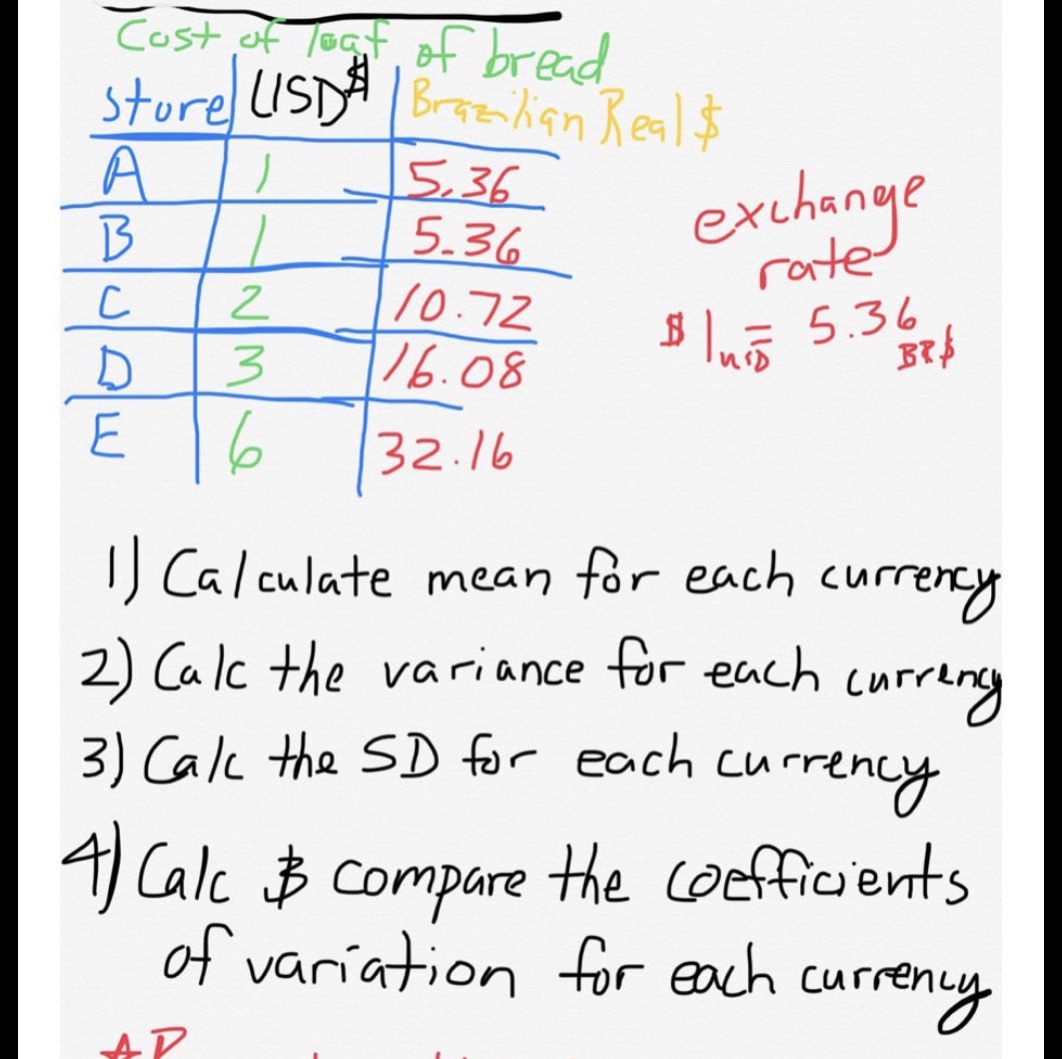 Cost of loaf of bread
Store USD$ Brazilian Real $
A 1 5.36
B 1 5.36
C 2 10.72
D 3 16.08
E 6 32.16
exchange
rate
$1 USD = 5.36 BR$
1) Calculate mean for each currency
2) Calc the variance for each currency
3) Calc the SD for each currency
4) Calc & compare the coefficients
of variation for each currency